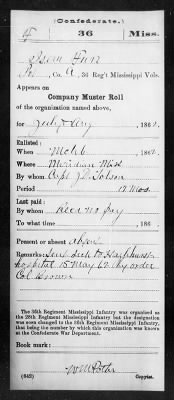 (Confederate.)
F 36 Miss.
Isom Furr
Co. A, 36 Reg't Mississippi Vols.
Appears on
Company Muster Roll
of the organization named above,
for July & Aug, 1862.
Enlisted:
When Mch 6, 1862.
Where Meridian Miss
By whom Capt J D
Period 12 mos
Last paid:
By whom Recd no pay
To what time , 186 .
Present or absent absent
Remarks: Sent sick to
hospital 15 May 62 by order
Col Brown
The 36th Regiment Mississippi Infantry was organized as
the 25th Regiment Mississippi Infantry but the designation
was soon changed to the 36th Regiment Mississippi Infantry,
that being the number by which this organization was known
at the Confederate War Department.
Book mark:
(642)
Copyist.